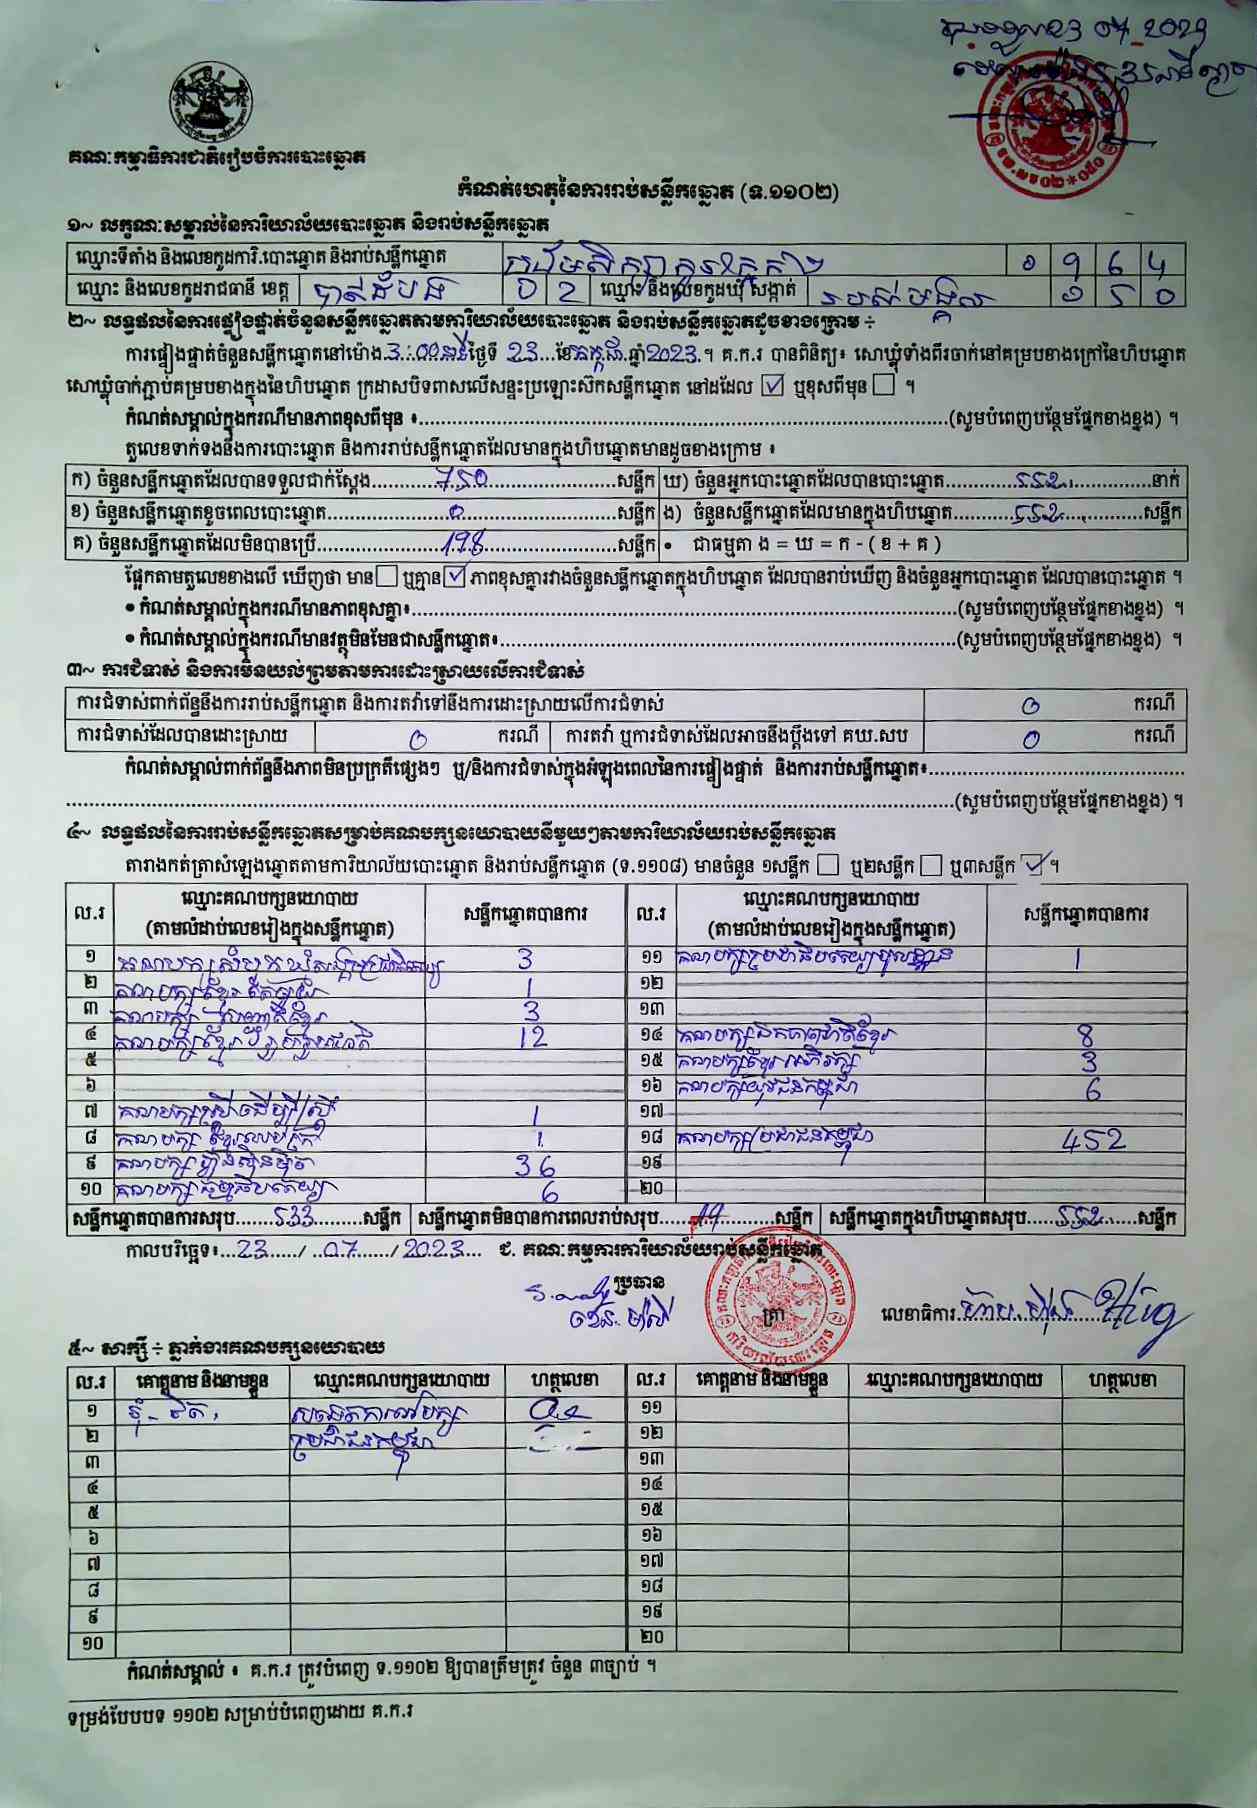 23 07 2023
គណៈកម្មាធិការជាតិរៀបចំការបោះឆ្នោត
កំណត់ហេតុនៃការរាប់សន្លឹកឆ្នោត (ទ.១១០២)
១~ លក្ខណៈសម្គាល់នៃការិយាល័យបោះឆ្នោត និងរាប់សន្លឹកឆ្នោត
ឈ្មោះទីតាំង និងលេខកូដការិ.បោះឆ្នោត និងរាប់សន្លឹកឆ្នោត 0 9 6 4
ឈ្មោះ និងលេខកូដរាជធានី ខេត្ត បាត់ដំបង 0 2 ឈ្មោះ និងលេខកូដឃុំ សង្កាត់ របស់មង្គល ០ ៥ ០
២~ លទ្ធផលនៃការផ្ទៀងផ្ទាត់ចំនួនសន្លឹកឆ្នោតតាមការិយាល័យបោះឆ្នោត និងរាប់សន្លឹកឆ្នោតដូចខាងក្រោម ÷
ការផ្ទៀងផ្ទាត់ចំនួនសន្លឹកឆ្នោតនៅម៉ោង 3:00នាទី ថ្ងៃទី 23 ខែ កក្កដា ឆ្នាំ 2023 ។ គ.ក.រ បានពិនិត្យ៖ សោឃ្លុំទាំងពីរចាក់នៅគម្របខាងក្រៅនៃហិបឆ្នោត
សោឃ្លុំចាក់ភ្ជាប់គម្របខាងក្នុងនៃហិបឆ្នោត ក្រដាសបិទពាសលើសន្ទះប្រឡោះស៊កសន្លឹកឆ្នោត នៅដដែល ☑ ឬខុសពីមុន ☐ ។
កំណត់សម្គាល់ក្នុងករណីមានភាពខុសពីមុន ៖ (សូមបំពេញបន្ថែមផ្នែកខាងខ្នង) ។
តួលេខទាក់ទងនឹងការបោះឆ្នោត និងការរាប់សន្លឹកឆ្នោតដែលមានក្នុងហិបឆ្នោតមានដូចខាងក្រោម ៖
ក) ចំនួនសន្លឹកឆ្នោតដែលបានទទួលជាក់ស្តែង 750 សន្លឹក ឃ) ចំនួនអ្នកបោះឆ្នោតដែលបានបោះឆ្នោត 552 នាក់
ខ) ចំនួនសន្លឹកឆ្នោតខូចពេលបោះឆ្នោត 0 សន្លឹក ង) ចំនួនសន្លឹកឆ្នោតដែលមានក្នុងហិបឆ្នោត 552 សន្លឹក
គ) ចំនួនសន្លឹកឆ្នោតដែលមិនបានប្រើ 198 សន្លឹក • ជាធម្មតា ង = ឃ = ក - ( ខ + គ )
ផ្អែកតាមតួលេខខាងលើ ឃើញថា មាន ☐ ឬគ្មាន ☑ ភាពខុសគ្នារវាងចំនួនសន្លឹកឆ្នោតក្នុងហិបឆ្នោត ដែលបានរាប់ឃើញ និងចំនួនអ្នកបោះឆ្នោត ដែលបានបោះឆ្នោត ។
• កំណត់សម្គាល់ក្នុងករណីមានភាពខុសគ្នា៖ (សូមបំពេញបន្ថែមផ្នែកខាងខ្នង) ។
• កំណត់សម្គាល់ក្នុងករណីមានវត្ថុមិនមែនជាសន្លឹកឆ្នោត៖ (សូមបំពេញបន្ថែមផ្នែកខាងខ្នង) ។
៣~ ការជំទាស់ និងការមិនយល់ព្រមតាមការដោះស្រាយលើការជំទាស់
ការជំទាស់ពាក់ព័ន្ធនឹងការរាប់សន្លឹកឆ្នោត និងការតវ៉ាទៅនឹងការដោះស្រាយលើការជំទាស់ 0 ករណី
ការជំទាស់ដែលបានដោះស្រាយ 0 ករណី ការតវ៉ា ឬការជំទាស់ដែលអាចនឹងប្តឹងទៅ គឃ.សប 0 ករណី
កំណត់សម្គាល់ពាក់ព័ន្ធនឹងភាពមិនប្រក្រតីផ្សេងៗ ឬ/និងការជំទាស់ក្នុងអំឡុងពេលនៃការផ្ទៀងផ្ទាត់ និងការរាប់សន្លឹកឆ្នោត៖
(សូមបំពេញបន្ថែមផ្នែកខាងខ្នង) ។
៤~ លទ្ធផលនៃការរាប់សន្លឹកឆ្នោតសម្រាប់គណបក្សនយោបាយនីមួយៗតាមការិយាល័យរាប់សន្លឹកឆ្នោត
តារាងកត់ត្រាសំឡេងឆ្នោតតាមការិយាល័យបោះឆ្នោត និងរាប់សន្លឹកឆ្នោត (ទ.១១០៨) មានចំនួន ១សន្លឹក ☐ ឬ២សន្លឹក ☐ ឬ៣សន្លឹក ☑ ។
ល.រ ឈ្មោះគណបក្សនយោបាយ (តាមលំដាប់លេខរៀងក្នុងសន្លឹកឆ្នោត) សន្លឹកឆ្នោតបានការ ល.រ ឈ្មោះគណបក្សនយោបាយ (តាមលំដាប់លេខរៀងក្នុងសន្លឹកឆ្នោត) សន្លឹកឆ្នោតបានការ
១ គណបក្សសំបុកឃ្មុំសង្គមប្រជាធិបតេយ្យ 3 ១១ គណបក្សប្រជាធិបតេយ្យមូលដ្ឋាន 1
២ គណបក្សខ្មែរ 1 ១២
៣ គណបក្ស ខ្មែរ 3 ១៣
៤ គណបក្សខ្មែរ 12 ១៤ គណបក្សឯកភាពជាតិខ្មែរ 8
៥ ១៥ គណបក្សខ្មែរអភិរក្ស 3
៦ ១៦ គណបក្សយុវជនកម្ពុជា 6
៧ គណបក្សស្ត្រីដើម្បីស្ត្រី 1 ១៧
៨ គណបក្ស ខ្មែរឈប់ក្រ 1 ១៨ គណបក្សប្រជាជនកម្ពុជា 452
៩ គណបក្សហ្វ៊ុនស៊ិនប៉ិច 36 ១៩
១០ គណបក្សធម្មាធិបតេយ្យ 6 ២០
សន្លឹកឆ្នោតបានការសរុប 533 សន្លឹក សន្លឹកឆ្នោតមិនបានការពេលរាប់សរុប 19 សន្លឹក សន្លឹកឆ្នោតក្នុងហិបឆ្នោតសរុប 552 សន្លឹក
កាលបរិច្ឆេទ៖ 23 / 07 / 2023 ជ. គណៈកម្មការការិយាល័យរាប់សន្លឹកឆ្នោត
ប្រធាន ត្រា លេខាធិការ
៥~ សាក្សី ÷ ភ្នាក់ងារគណបក្សនយោបាយ
ល.រ គោត្តនាម និងនាមខ្លួន ឈ្មោះគណបក្សនយោបាយ ហត្ថលេខា ល.រ គោត្តនាម និងនាមខ្លួន ឈ្មោះគណបក្សនយោបាយ ហត្ថលេខា
១ ១១
២ ប្រជាជនកម្ពុជា ១២
៣ ១៣
៤ ១៤
៥ ១៥
៦ ១៦
៧ ១៧
៨ ១៨
៩ ១៩
១០ ២០
កំណត់សម្គាល់ ៖ គ.ក.រ ត្រូវបំពេញ ទ.១១០២ ឱ្យបានត្រឹមត្រូវ ចំនួន ៣ច្បាប់ ។
ទម្រង់បែបបទ ១១០២ សម្រាប់បំពេញដោយ គ.ក.រ